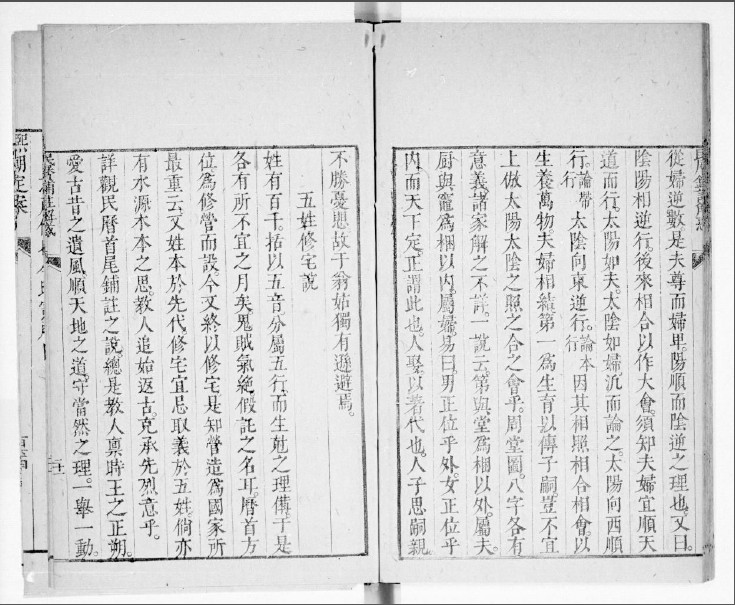 從婦逆數是夫尊而婦卑陽順而陰逆之理也又曰
陰陽相逆行後來相合以作大會須知夫婦宜順天
道而行太陽如夫太陰如婦沉而論之太陽向西順
行論帶行太陰向東逆行論本行因其相照相合相會以
生養萬物夫婦相結第一為生育以傳子嗣豈不宜
上倣太陽太陰之照之合之會乎周堂圖八字各有
意義諸家解之不詳一說云第與堂為梱以外屬夫
厨與竈為梱以內屬婦易曰男正位乎外女正位乎
內而天下定正謂此也人娶以著代也人子思嗣親
不勝憂思故于翁姑獨有遜避焉
五姓修宅說
姓有百千括以五音分屬五行而生尅之理備于是
各有所不宜之月矣鬼賊氣絕假託之名耳曆首方
位為修營而設今文終以修宅是知營造為國家所
最重云又姓本於先代修宅宜忌取義於五姓倘亦
有水源木本之思教人追始返古克承先烈意乎
詳觀民曆首尾鋪註之說總是教人禀時王之正朔
愛古昔之遺風順天地之道守當然之理一舉一動
民曆鋪註解惑